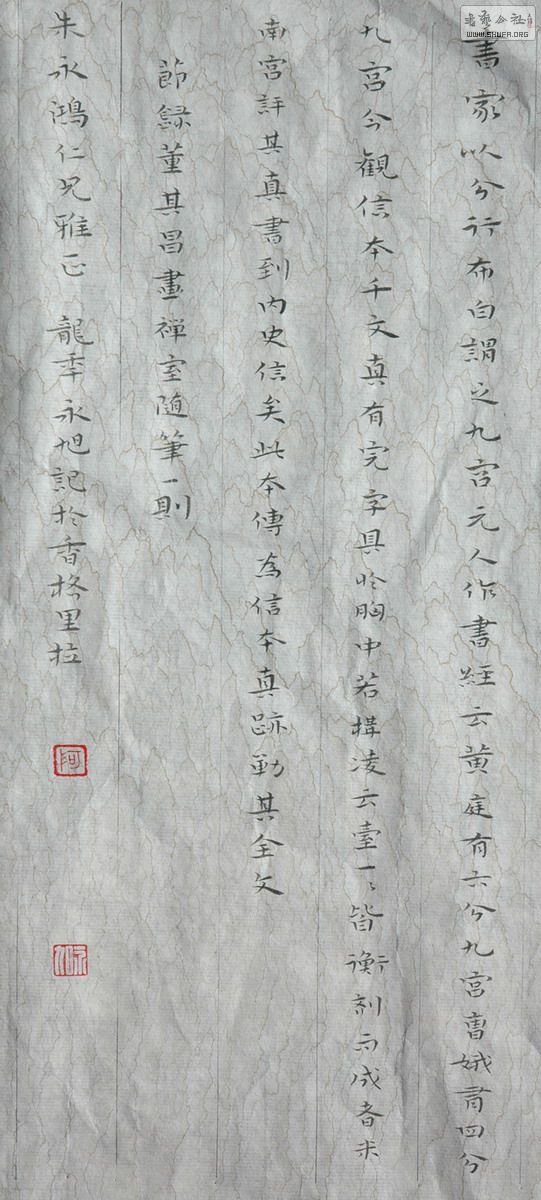 書家以分行布白謂之九宮元人作書經云黃庭有六分九宮曹娥有四分
九宮今觀信本千文真有完字具於胸中若構凌云臺一〻皆衡劑而成者米
南宮評其真書到內史信矣此本傳為信本真跡勒其全文
節録董其昌畫禪室隨筆一則
朱永鴻仁兄雅正 龍年永旭記於香格里拉
書藝公社
WWW.SHUFA.ORG